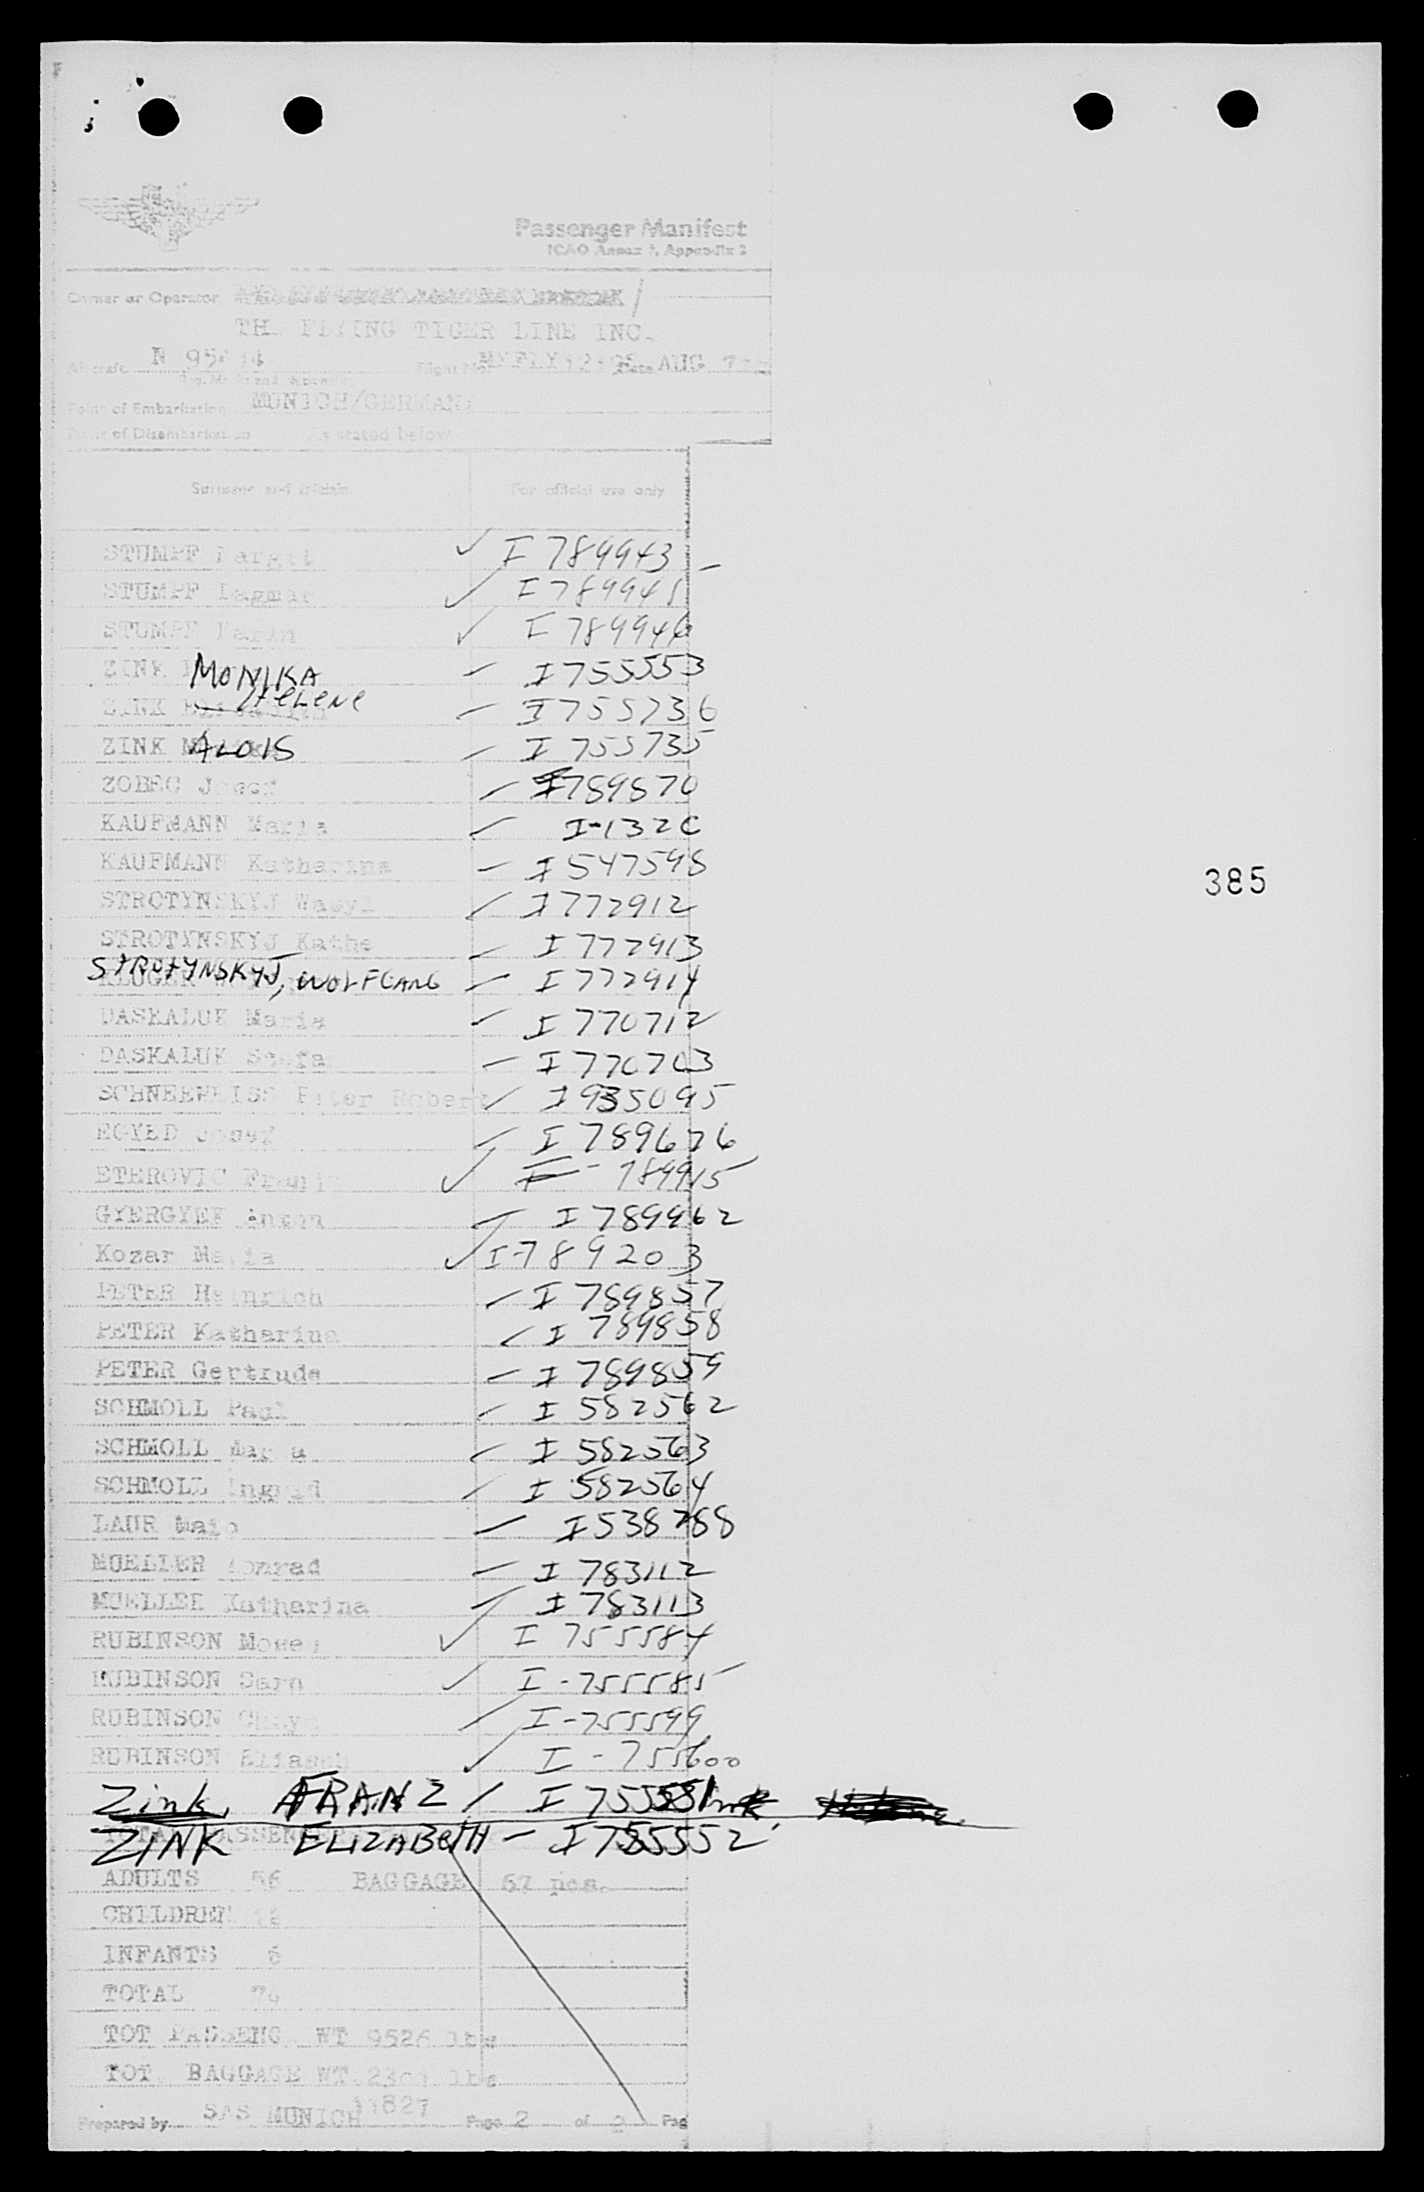 Passenger Manifest
ICAO Annex 9, Appendix 2
Owner or Operator
THE FLYING TIGER LINE INC.
Aircraft N 95 14 Flight No. Date AUG 7
Point of Embarkation MUNICH/GERMANY
Point of Disembarkation As stated below
Surname and initials For official use only
STUMPF Margit ✓ I 789943 –
STUMPF Dagmar ✓ I 789945
STUMPF Karin ✓ I 789946
ZINK MONIKA – I 755553
ZINK Helene – I 755736
ZINK ALOIS – I 755735
ZOBEC Josef – I 789870
KAUFMANN Maria – I-1320
KAUFMANN Katharina – I 547598
STROTYNSKYJ Wasyl – I 772912
STROTYNSKYJ Kathe – I 772913
STROTYNSKYJ, WOLFGANG – I 772914
DASKALUK Maria – I 770712
DASKALUK Stefan – I 770703
SCHNEEWEISS Peter Robert ✓ I 935095
EGYED Josef – I 789676
ETEROVIC Franjo ✓ I - 789915
GYERGYEK Anton – I 789962
Kozar Maria ✓ I-789203
PETER Heinrich – I 789857
PETER Katharina ✓ I 789858
PETER Gertrude – I 789859
SCHMOLL Paul – I 582562
SCHMOLL Maria – I 582563
SCHMOLL Ingrid – I 582564
LAUR Maio – I 538788
MUELLER Konrad – I 783112
MUELLER Katharina – I 783113
RUBINSON Moses ✓ I 755584
RUBINSON Sara ✓ I - 755585
RUBINSON Chaya ✓ I - 755599
RUBINSON Eliasch ✓ I - 755600
Zink, FRANZ / I 755551
ZINK ELIZABeTH – I 755552
ADULTS 56 BAGGAGE 67 pcs.
CHILDREN 12
INFANTS 6
TOTAL 74
TOT PASSENG. WT 9526 lbs
TOT. BAGGAGE WT. lbs
11827
Prepared by SAS MUNICH Page 2 of 2 Pag
385